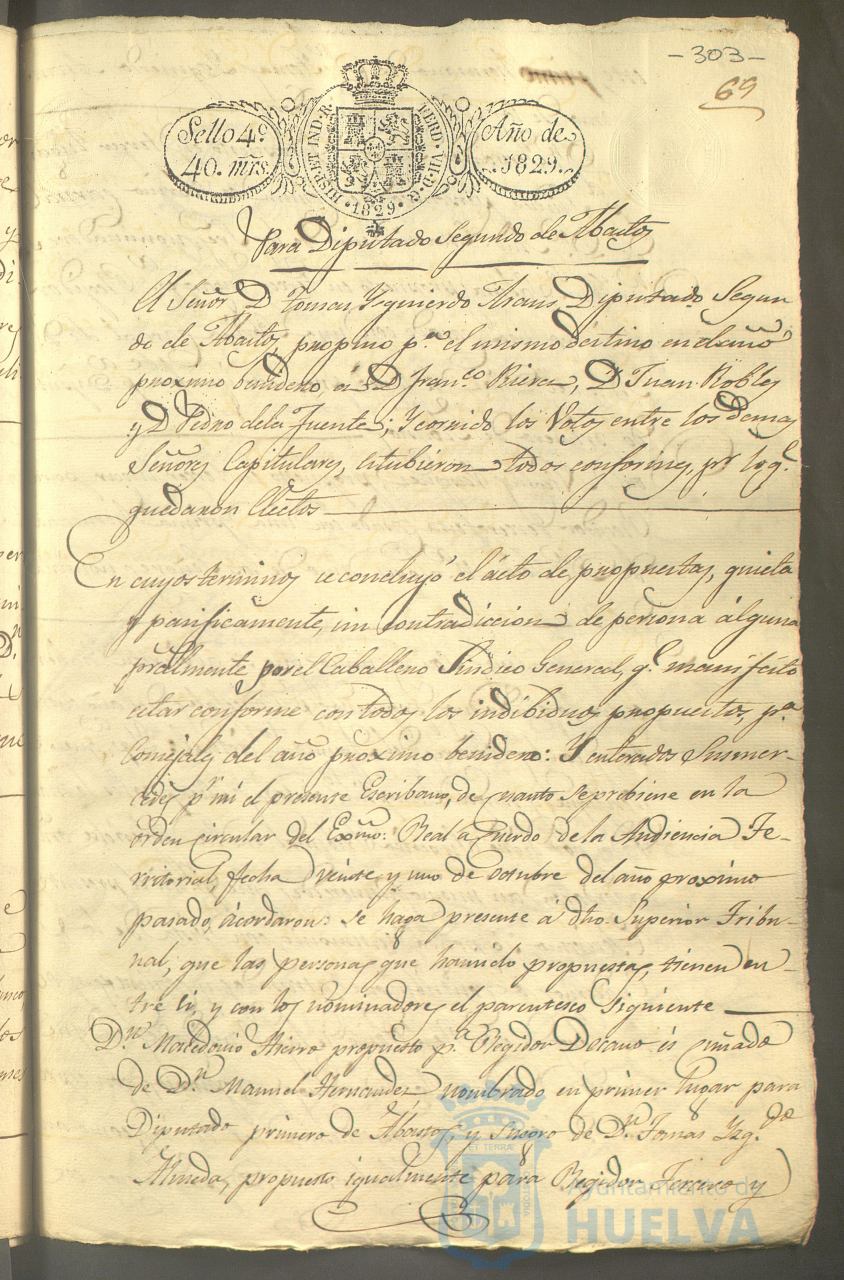 -303-
69
Sello 4º
40. mrs.
HISP. ET IND. R.
FERD. VII. D. G.
1829
Año de
1829.
Para Diputado Segundo de Abastos
El Señor D Tomas Yzquierdo Diputado Segun
do de Abastos propuso pª el mismo destino en el año
proximo benidero, á D Franco Riera, D Juan Robles
y D Pedro dela Fuente; Y corrido los Votos entre los demas
Señores Capitulares, estubieron todos conformes, pr lo q.
quedaron Electos
En cuyos terminos se concluyó el ácto de propuestas, quieta
y pasificamente, sin contradiccion de persona álguna
pralmente por el Caballero Sindico General, q. manifestó
estar conforme con todos los indibiduos propuestos, pª
Consejales del año proximo benidero: Y enterados Susmer-
cedes pr mi el presente Escribano, de cuanto se prebiene en la
órden circular del Exmo: Real Acuerdo de la Audiencia Te-
rritorial, fecha veinte y uno de octubre del año proximo
pasado, ácordaron: se haga presente á dho Superior Tribu-
nal, que las personas que han sido propuestas, tienen en-
tre si, y con los nominadores el parentesco siguiente
Dn. Macedonio Hierro propuesto pª Regidor Decano és cuñado
de Dn. Manuel Hernandez nombrado en primer lugar para
Diputado primero de Abastos, y Suegro de Dn. Tomas Yzq.do
propuesto igualmente para Regidor Tercero y
Ayuntamiento de
HUELVA